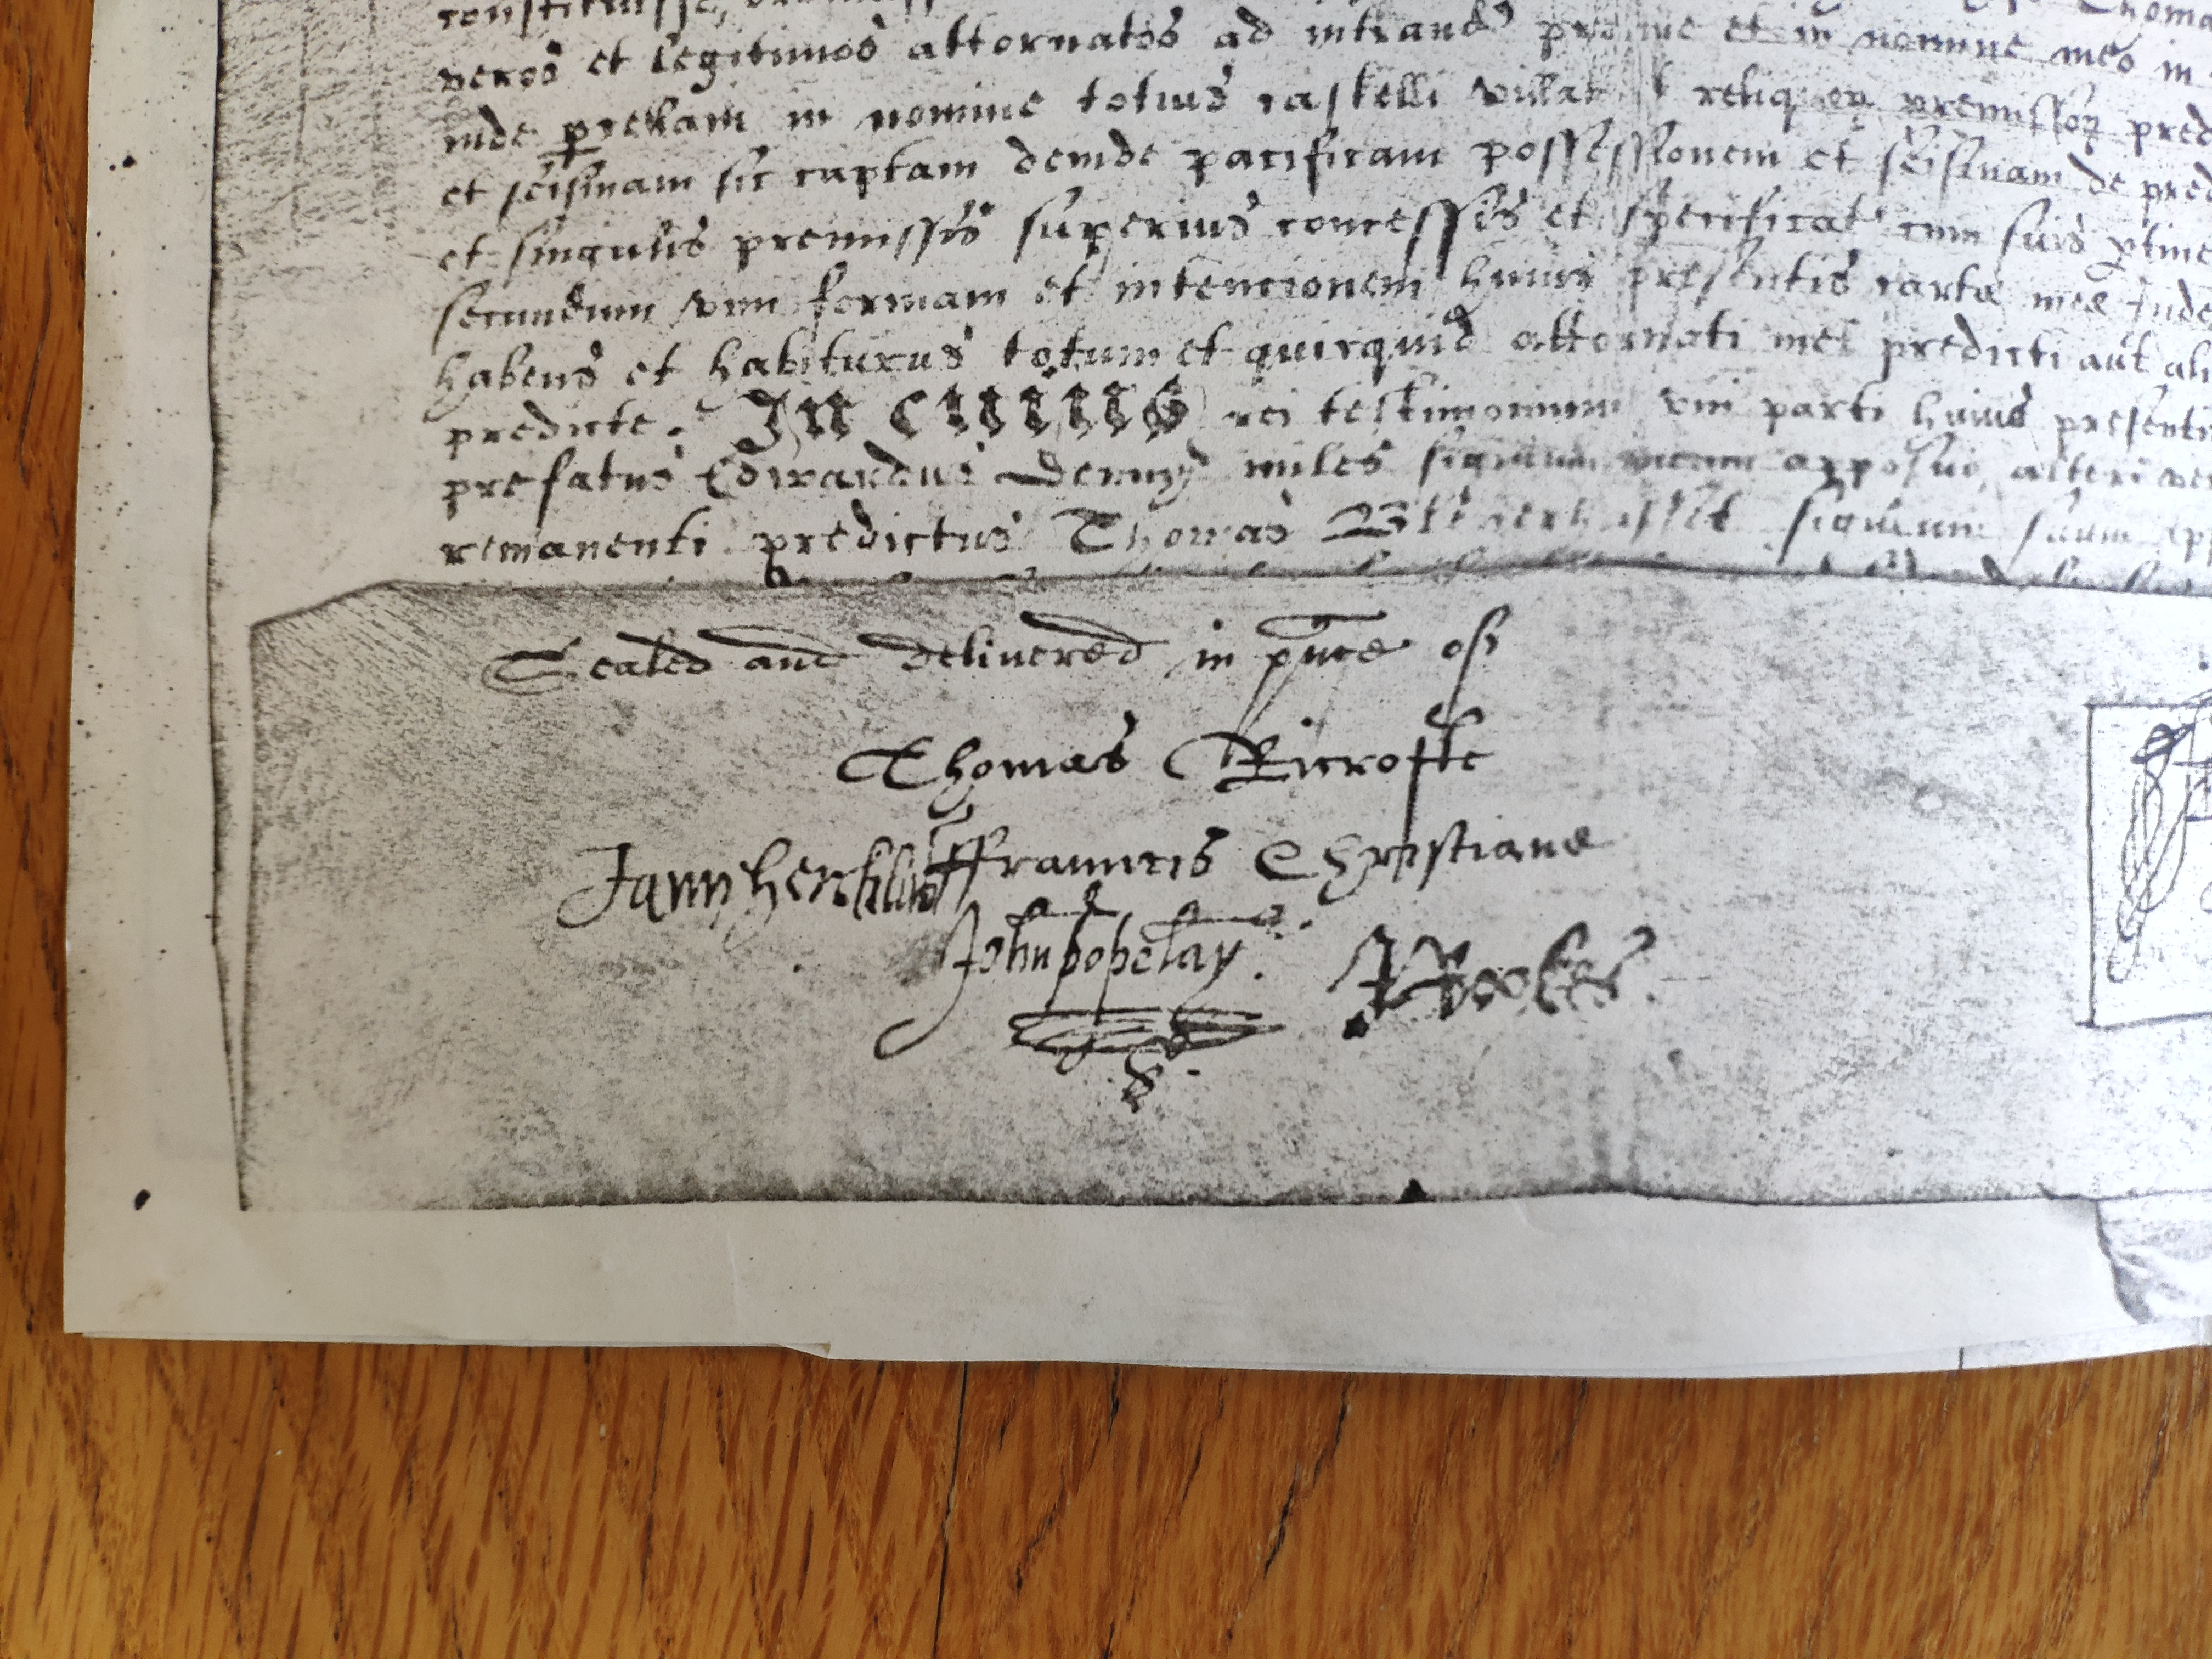 constituisse,
veros et legitimos attornatos ad intrand' pro me et in nomine meo in
inde prekam in nomine totius castelli villat et reliquor premissor pred
et seisinam sic captam deinde pacificam possessionem et seisinam de pred
et singulis premissis superius concessis et specificat' cum suis ptine
secundum vim formam et intencionem huius presentis carte mee Inde
habens et habiturus totum et quicquid attornati mei predicti aut ali
predicte. In cuius rei testimonium vni parti huius presenti
prefatus Edwardus Denny miles sigillum meum apposui, alteri ver
remanenti predictus Thomas sigillum suum app
Sealed and delivered in pnce off
Thomas Ricrofte
ffrauncis Christiane
John popelay.